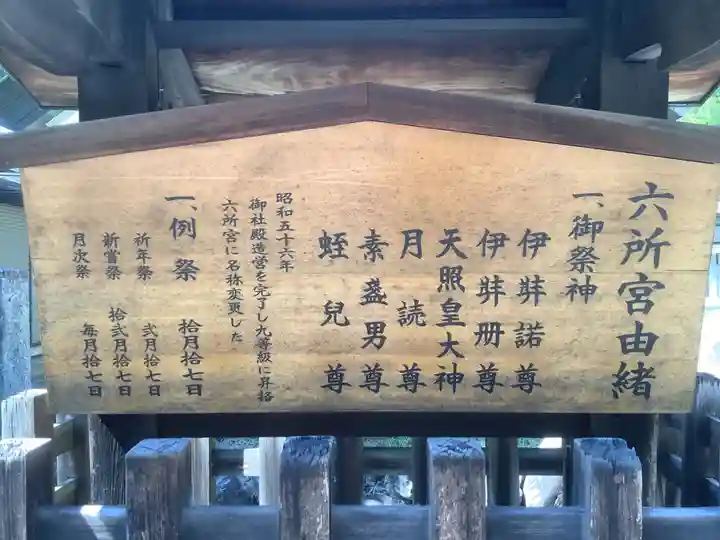 六所宮由緒
一、御祭神
伊弉諾尊
伊弉册尊
天照皇大神
月読尊
素盞男尊
蛭兒尊
昭和五十六年
御社殿造営を完了し九等級に昇格
六所宮に名称変更した
一、例祭 拾月拾七日
祈年祭 弐月拾七日
新嘗祭 拾弐月拾七日
月次祭 毎月拾七日